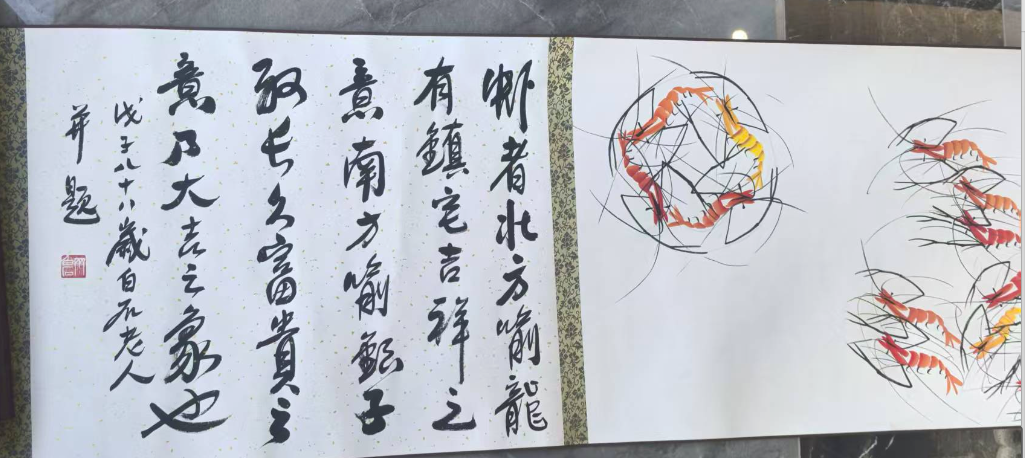 虾者北方喻龍
有鎮宅吉祥之
意南方喻銀子
取长久富貴之
意乃大吉之象也
戊子八十八歲白石老人
并題